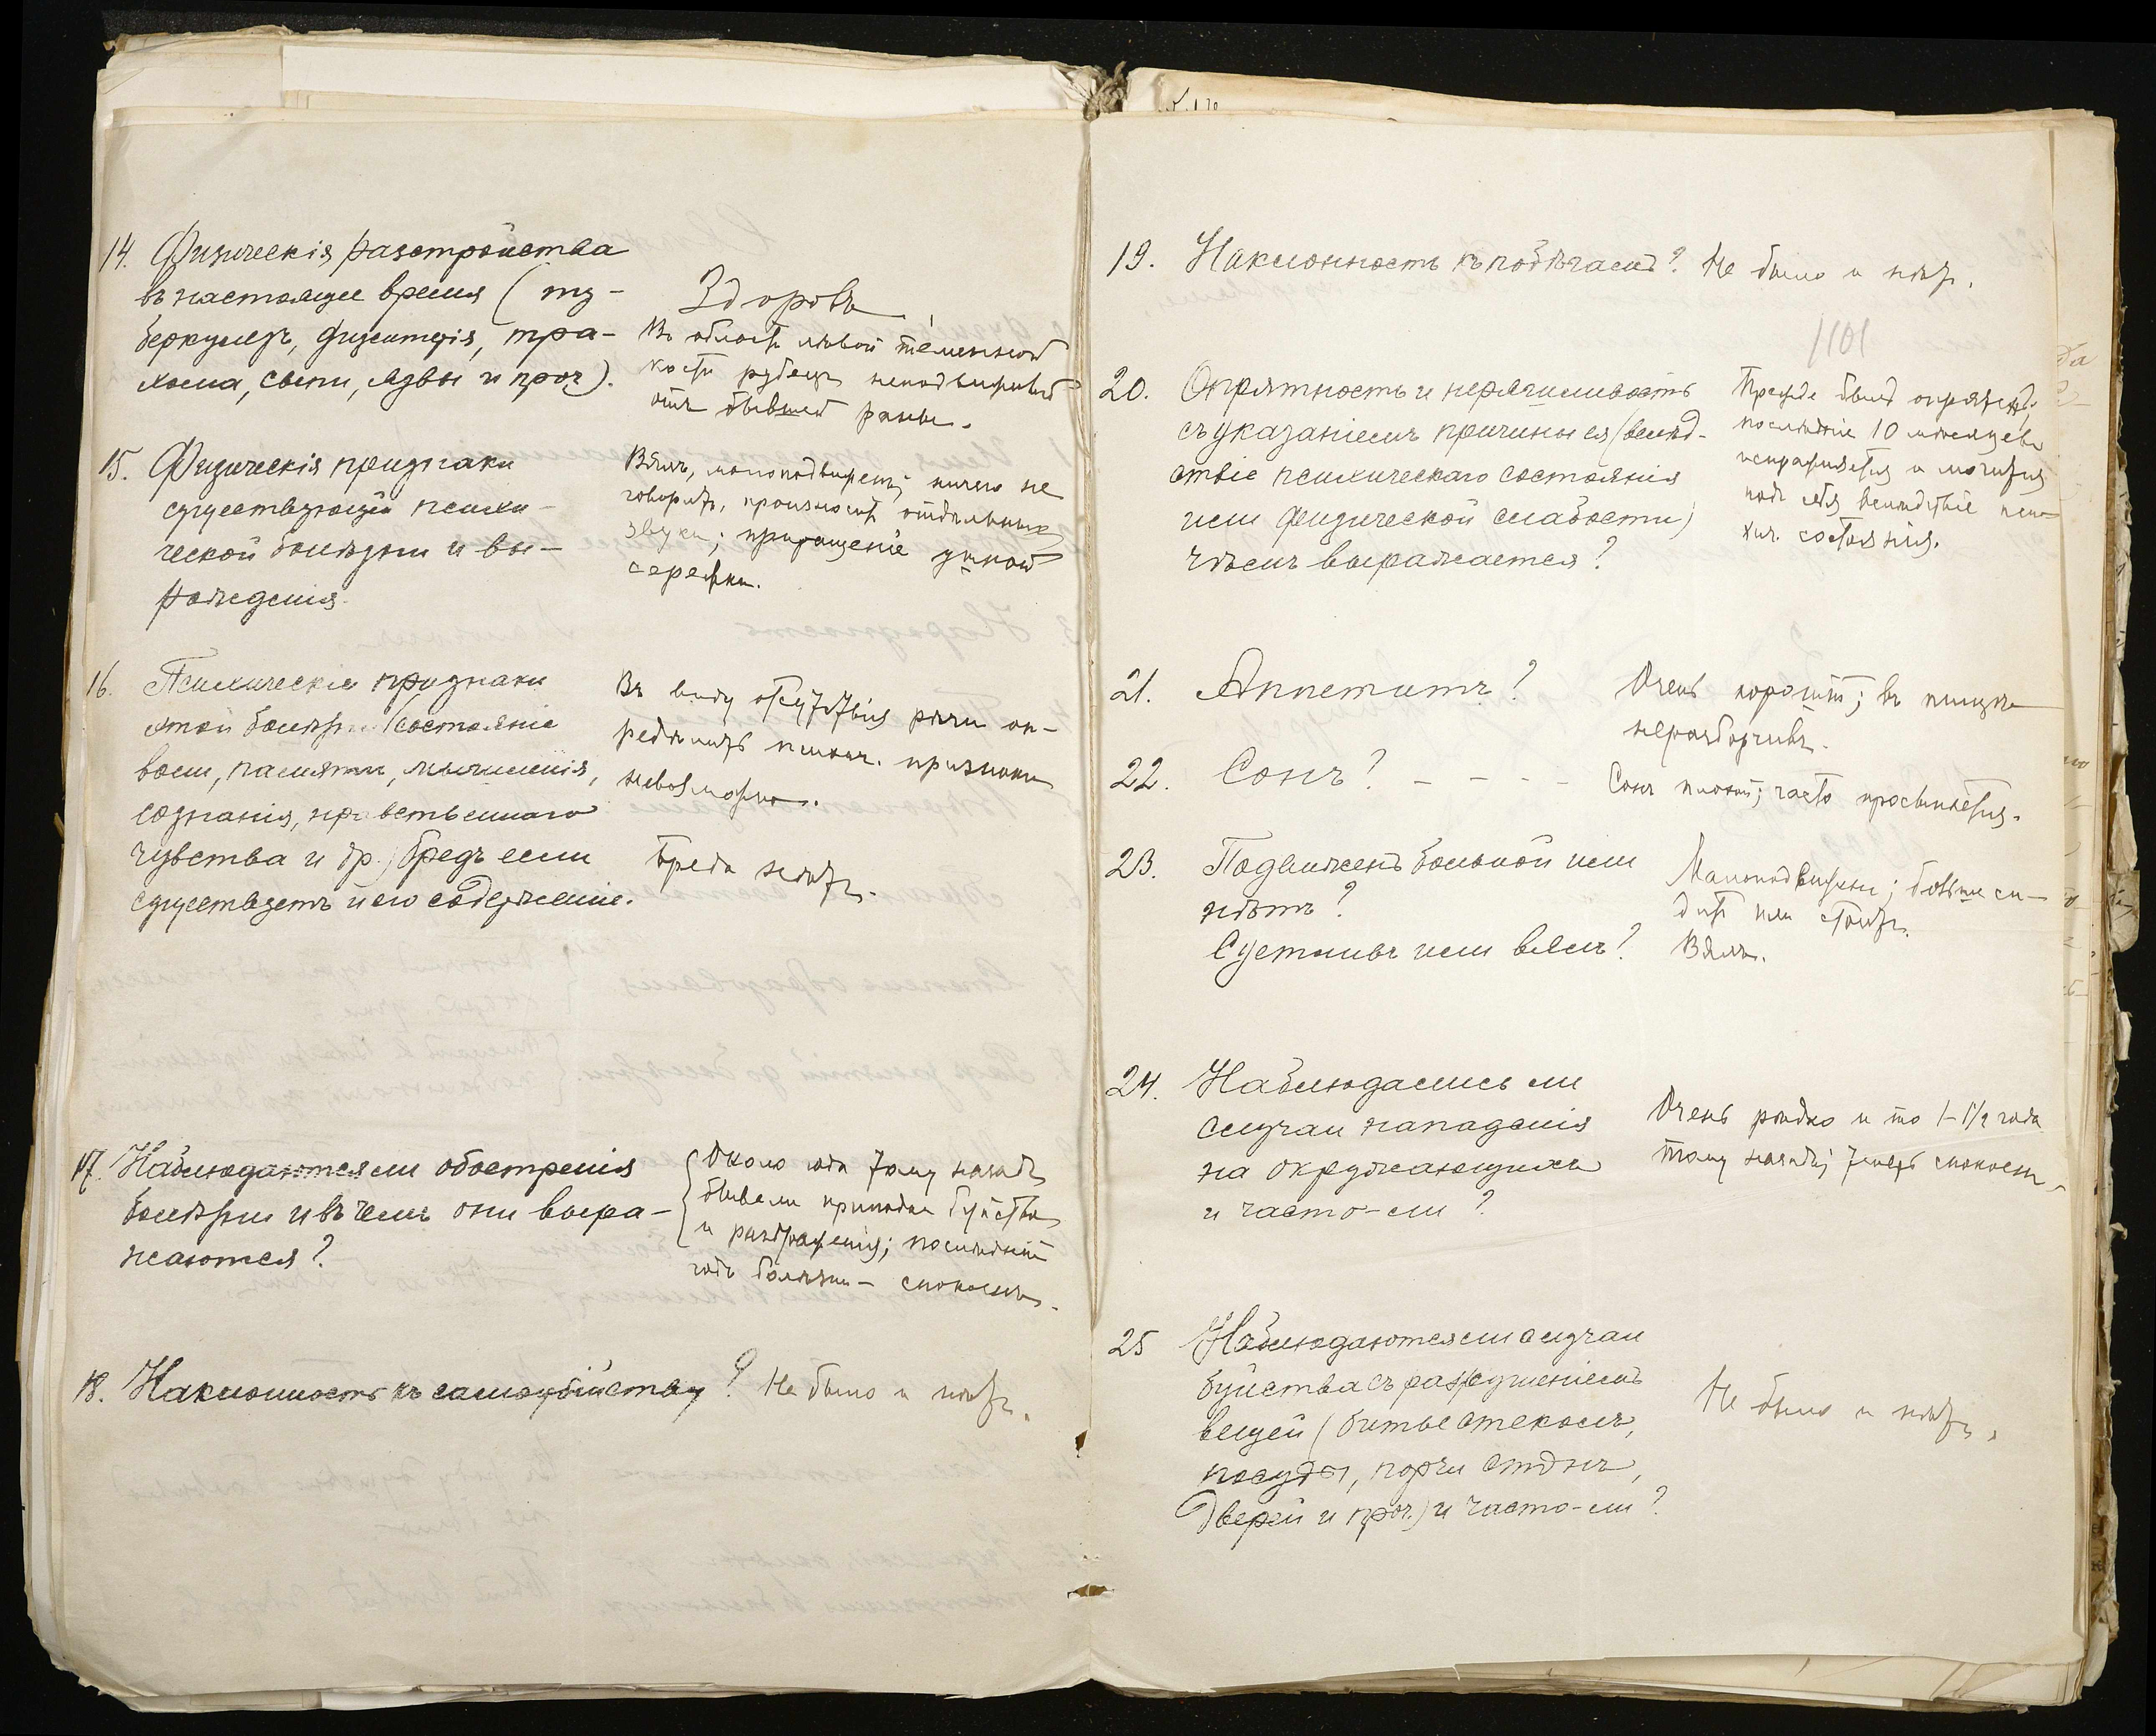 14. Физическія разстройства
въ настоящее время (ту-
беркулезъ, дизентерія, тра-
хома, сыпи, язвы и проч).
Здоровъ.
Въ области лѣвой теменной
кости рубецъ неподвижный
отъ бывшей раны.
15. Физическія признаки
существующей психи-
ческой болѣзни и вы-
рожденія.
Вялъ, малоподвиженъ; ничего не
говоритъ, произноситъ отдѣльные
звуки; приращеніе ушной
сережки.
16. Психическіе признаки
этой болѣзни (состояніе
воли, памяти, мышленія,
сознанія, нравственнаго
чувства и др.) бредъ если
существуетъ и его содержаніе.
Въ виду отсутствія рѣчи оп-
редѣлить психич. признаки
невозможно.
Бреда нѣтъ.
17. Наблюдаются ли обостренія
болѣзни и въ чемъ они выра-
жаются?
Около года тому назадъ
бывали припадки буйства
и раздраженія; послѣдній
годъ болѣзни – спокоенъ.
18. Наклонность къ самоубійству? Не было и нѣтъ.
19. Наклонность къ побѣгамъ? Не было и нѣтъ.
1101
20. Опрятность и неряшливость
съ указаніемъ причины ея (вслѣд-
ствіе психическаго состоянія
или физической слабости)
чѣмъ выражается?
Прежде былъ опрятенъ;
послѣдніе 10 мѣсяцевъ
испражняется и мочится
подъ себя вслѣдствіе пси-
хич. состоянія.
21. Аппетитъ?
Очень хорошій; въ пищѣ
неразборчивъ.
22. Сонъ? – – – –
Сонъ плохой; часто просыпается.
23. Подвиженъ больной или
нѣтъ?
Суетливъ или вялъ?
Малоподвиженъ; больше си-
дитъ или стоитъ.
Вялъ.
24. Наблюдались ли
случаи нападенія
на окружающихъ
и часто-ли?
Очень рѣдко и то 1–1½ года
тому назадъ; теперь спокоенъ.
25 Наблюдаются ли случаи
буйства съ разрушеніемъ
вещей (битье стеколъ,
посуды, порчи стѣнъ,
дверей и проч.) и часто-ли?
Не было и нѣтъ.